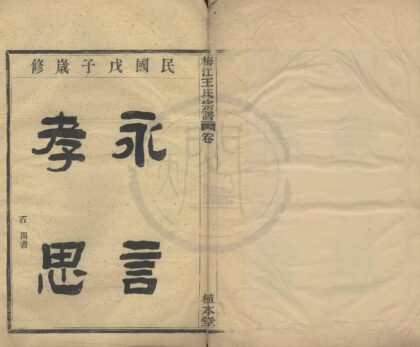 梅江王氏宗譜
卷
植本堂
民國戊子歲修
永言
孝思
石岡書